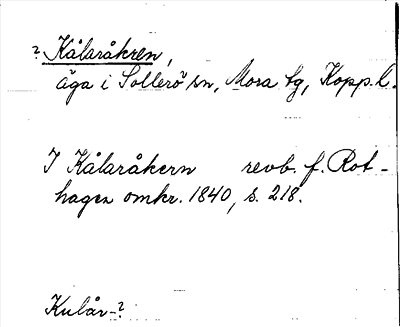 ? Kålaråkren,
äga i Sollerö sn, Mora tg, Kopp. l.
I Kålaråkern revb. f. Rot-
hagen omkr. 1840, s. 218.
Kulår-?